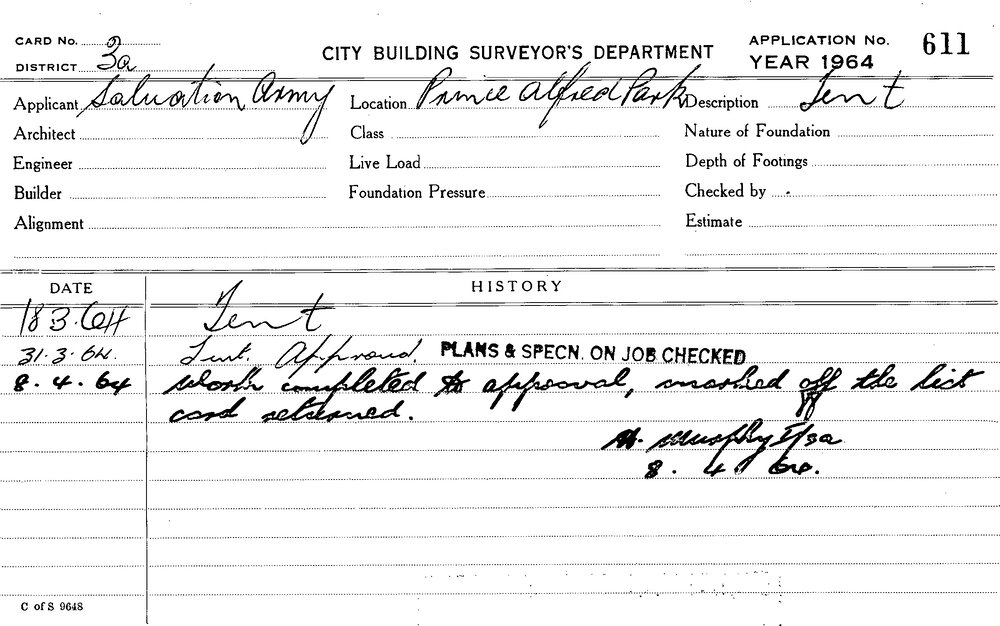 CARD No. 3a
DISTRICT
CITY BUILDING SURVEYOR'S DEPARTMENT
APPLICATION No. 611
YEAR 1964
Applicant Salvation Army Location Prince Alfred Park Description Tent
Architect Class Nature of Foundation
Engineer Live Load Depth of Footings
Builder Foundation Pressure Checked by
Alignment Estimate
DATE HISTORY
18 3.64 Tent
31.3.64. Tent. Approved. PLANS & SPECN. ON JOB CHECKED
8.4.64 Work completed to approval, marked off the list
card returned.
Murphy I/3a
8. 4. 64.
C of S 9648